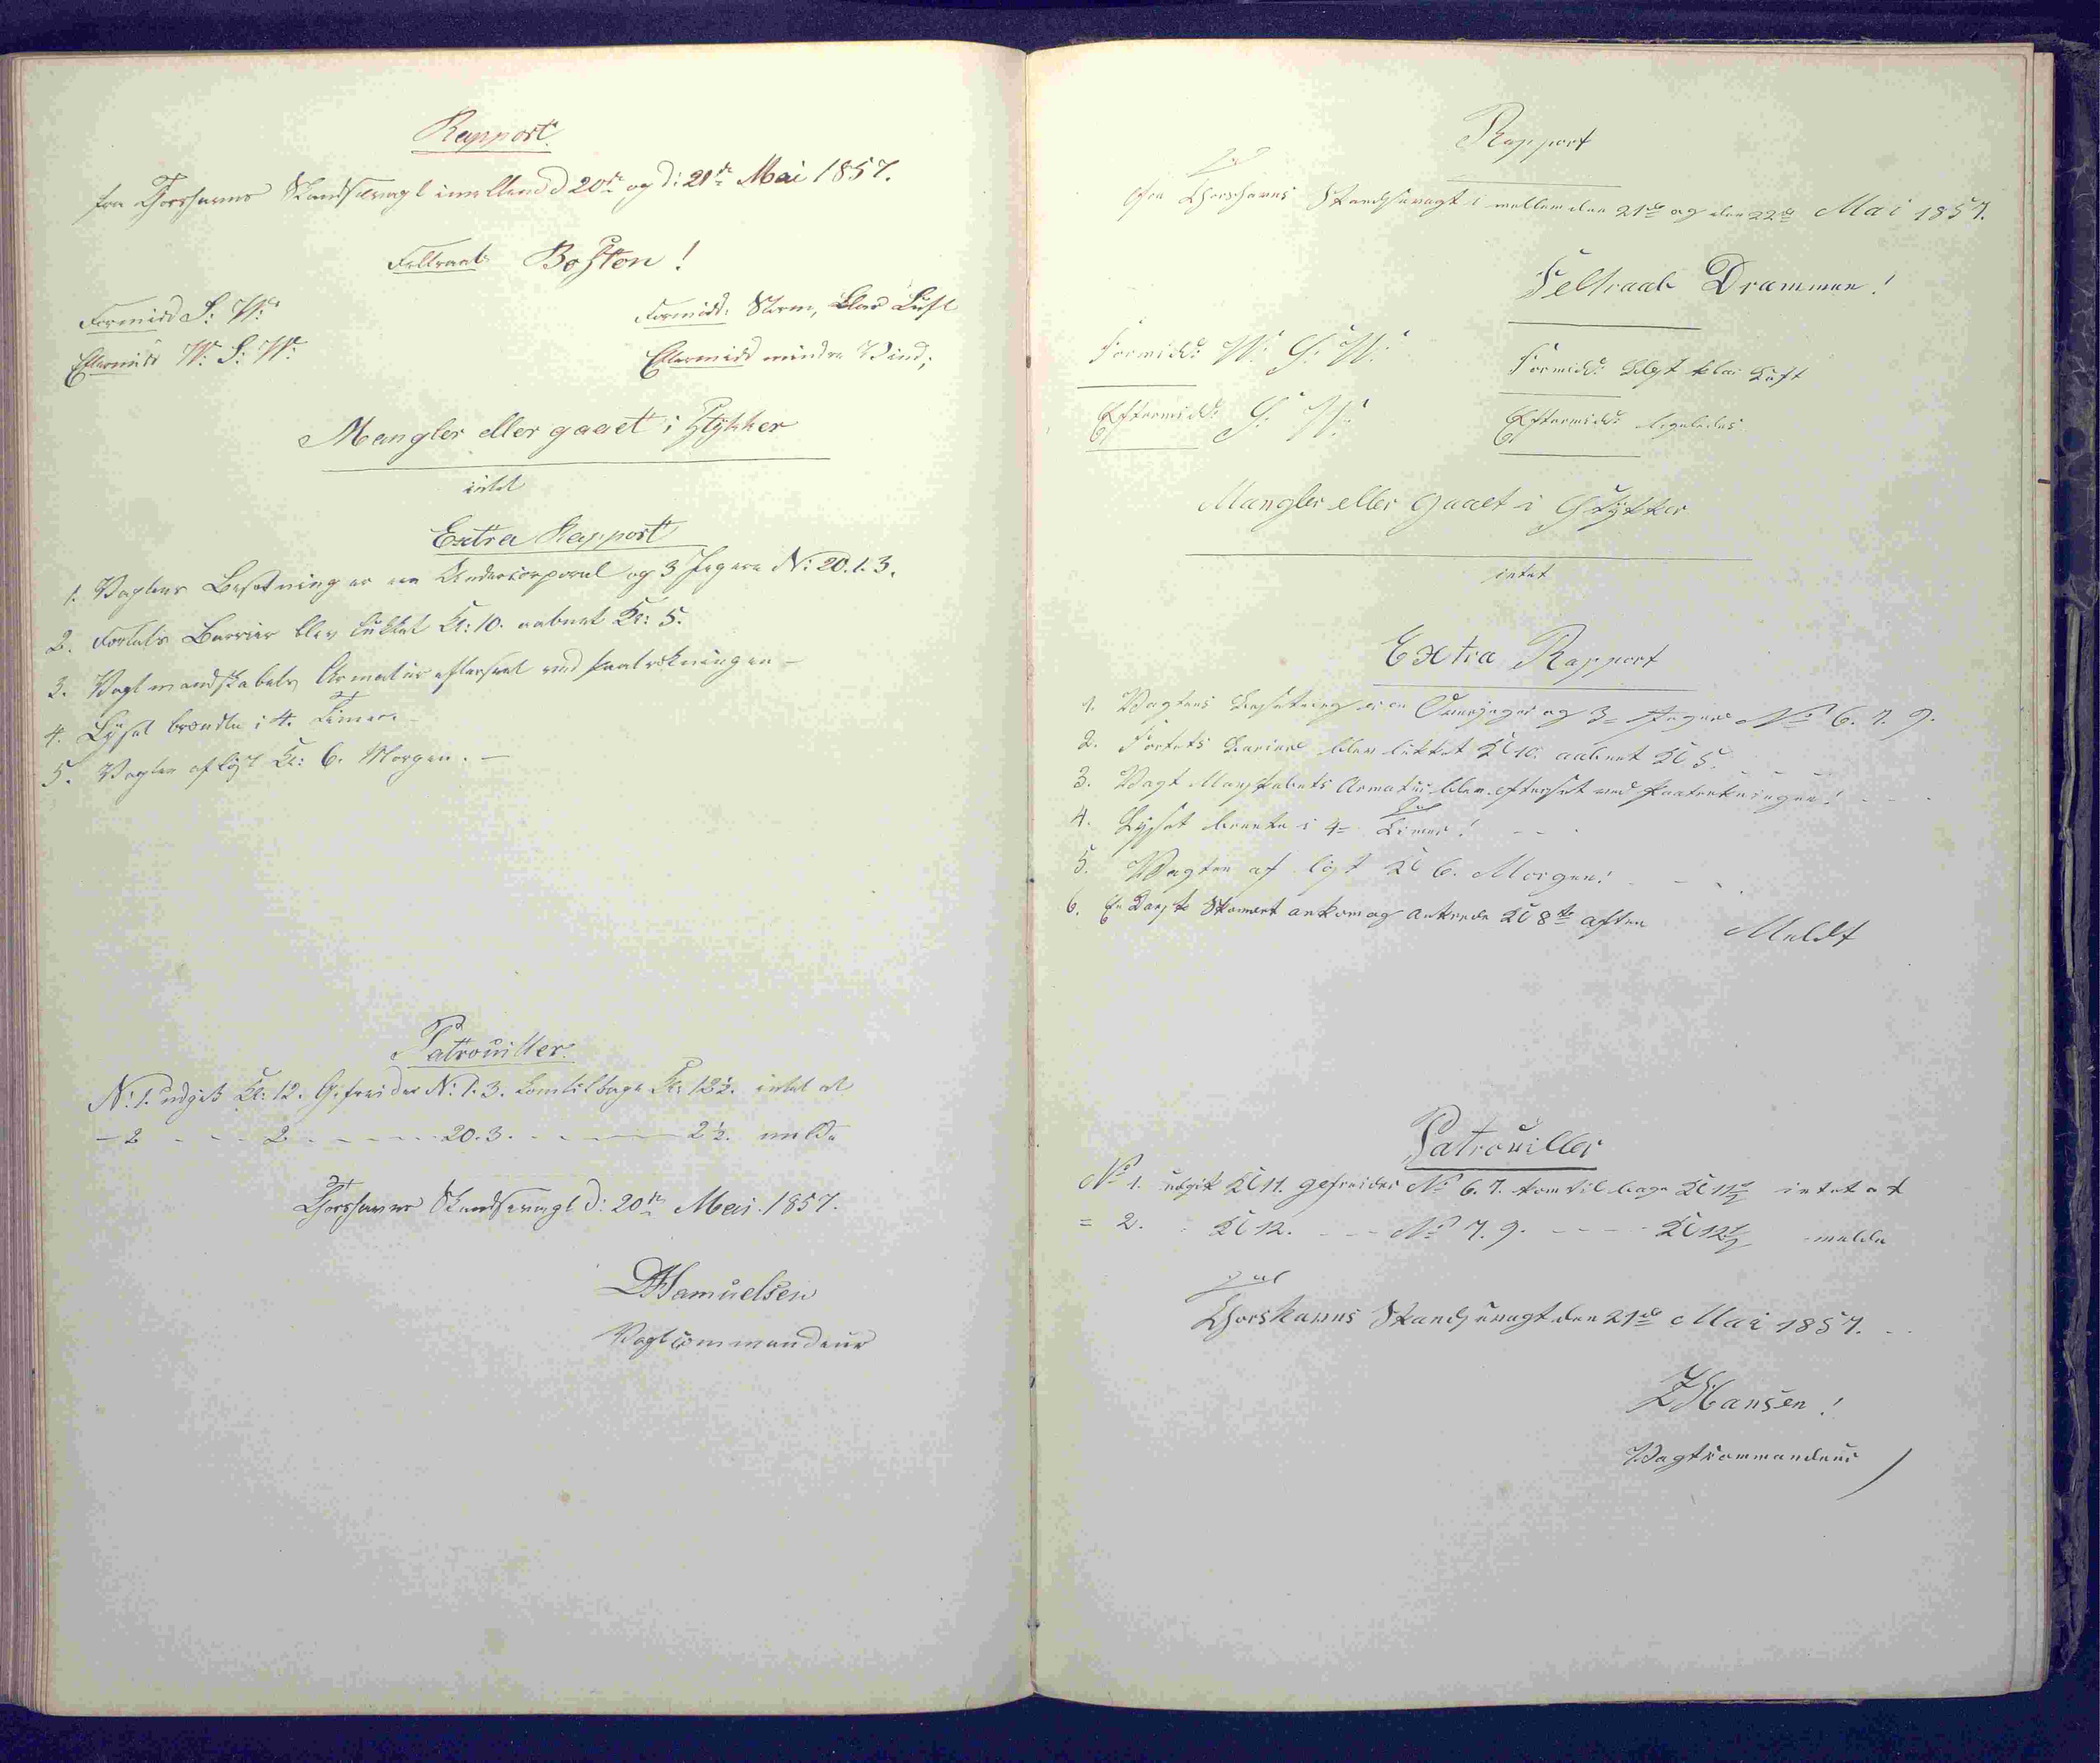 Rapport.
fra Thorshavns Skandsevagt imellem d 20de og d: 21de Mai 1857.
Feltraab Boston!
Formidd S: W:
Formidd: Storm, klar Luft
Eftermidd W: S: W:
Eftermidd mindre Vind;
Mangler eller gaaet i Stykker
intet
Extra Rapport
1. Vagtens Besætning er en Undercorporal og 3 Jægere N: 20. 1. 3.
2. Fortets Barrier blev lukket Kl: 10. aabnet Kl: 5.
3. Vagtmandskabets Armatur efterseet ved Paatrækningen –
4. Lyset brændte i 4. Timer.
5. Vagten afløst Kl: 6. Morgen. –
Patrouiller.
N: 1. udgik Kl: 12. Gefreider N: 1. 3. kom tilbage Kl: 12½. intet at
– 2 - - - 2 - - - - - 20. 3. - - - - 2½. melde
Thorshavns Skandsevagt d: 20de Mai. 1857.
DSamuelsen
Vagtcommandeur
Rapport
fra Thorshavns Skandsevagt imellem den 21de og den 22de Mai 1857.
Feltraab Drammen!
Formidd: W: S: W:
Formidd: klar Luft
Eftermidd: S: W:
Eftermidd: ligeledes
Mangler eller gaaet i Stykker
intet
Extra Rapport
1. Vagtens Besætning er en Overjæger og 3 Jægere No 6. 7. 9.
2. Fortets Bariere blev lukket Kl 10. aabnet Kl 5. - - -
3. Vagt Manskabets Armatur blev efterset ved Paatrækningen! - - -
4. Lyset brænte i 4 Timer! - - -
5. Vagten afløst Kl 6. Morgen! - - -
6. En Dansk Skonnert ankom og ankrede Kl 8te aften
Meldt
Patrouiller
No 1. udgik Kl 11. gefreider No 6. 7. kom tilbage Kl 11½ intet at
= 2. : Kl 12. - - - No 7. 9. - - - - Kl 12½ melde
Thorshavns Skandsevagt den 21de Mai 1857. - -
ZHansen!
Vagtcommandeur